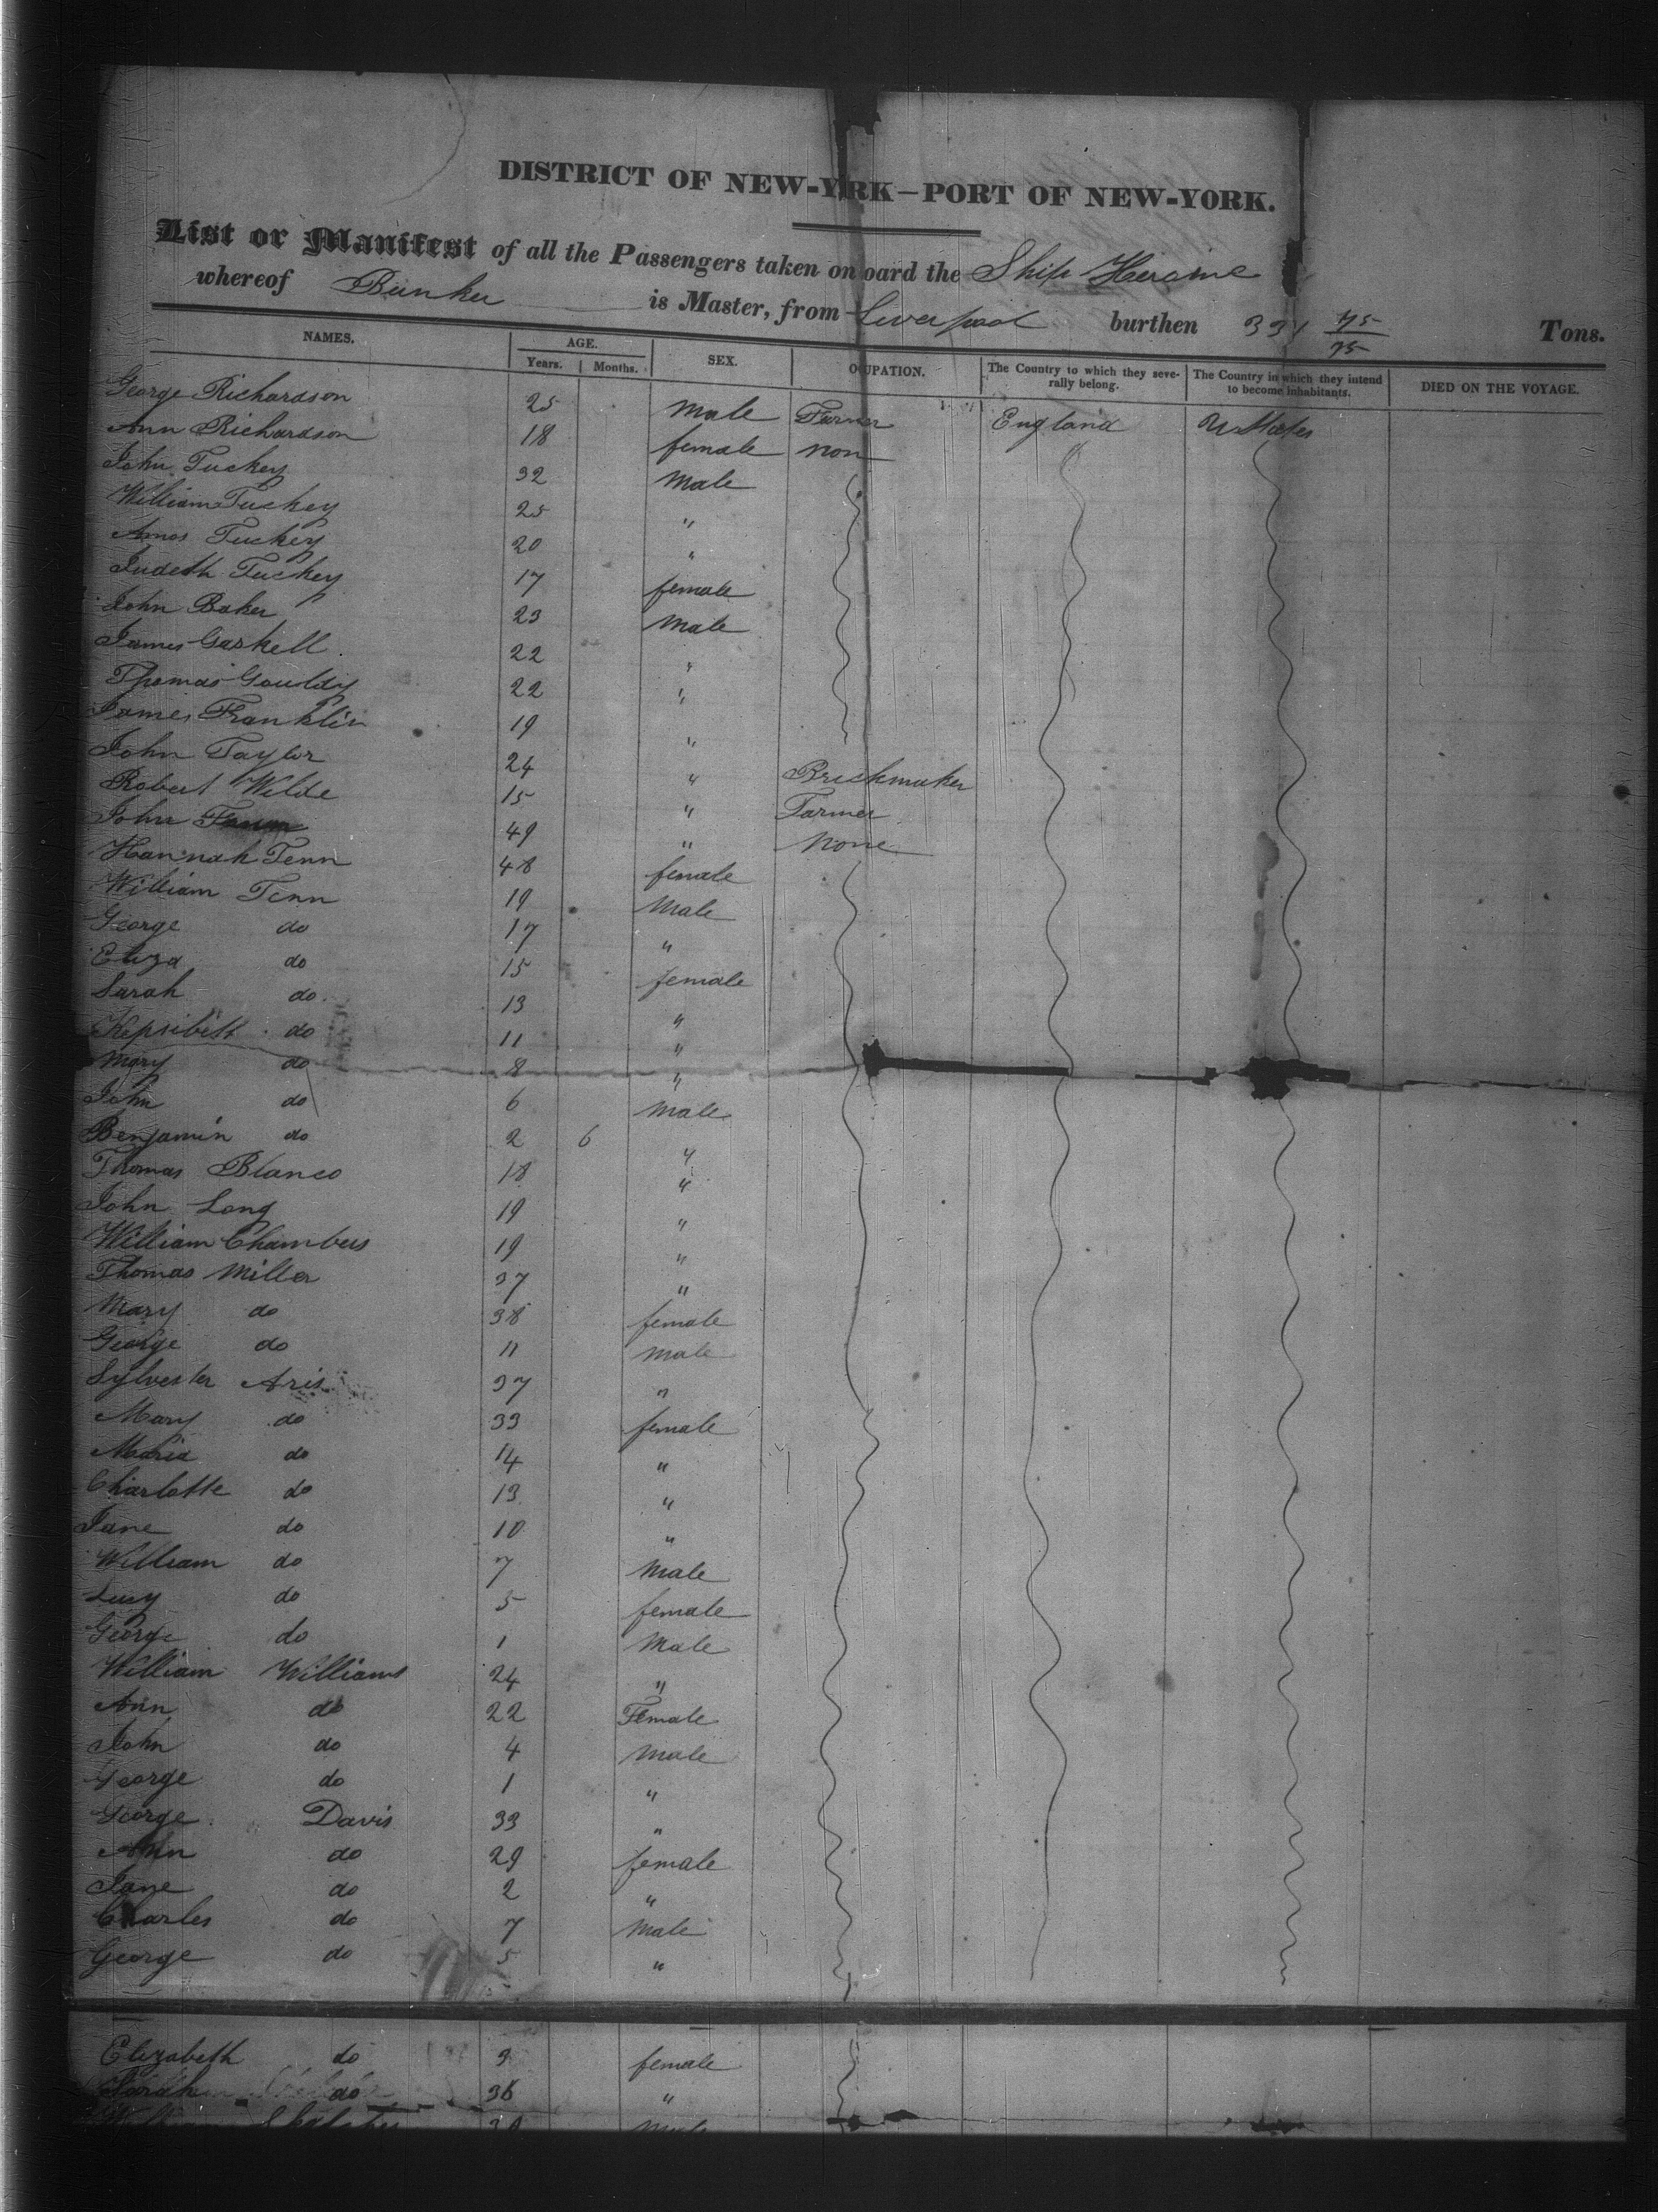 DISTRICT OF NEW-Y RK—PORT OF NEW-YORK.
List or Manifest of all the Passengers taken on oard the Ship Heroine
whereof Bunker is Master, from Liverpool burthen 331 75/95 Tons.
NAMES. AGE. Years. Months. SEX. OC UPATION. The Country to which they severally belong. The Country in which they intend to become inhabitants. DIED ON THE VOYAGE.
George Richardson 25 Male Farmer England U States
Ann Richardson 18 female non
John Tuckey 32 Male
William Tuckey 25 "
Amos Tuckey 20 "
Judeth Tuckey 17 female
John Baker 23 Male
James Gaskell 22 "
Thomas Gouldy 22 "
James Franklin 19 "
John Taylor 24 " Brickmaker
Robert Wilde 15 " Farmer
John 49 " None
Hannah Fenn 48 female
William Fenn 19 Male
George do 17 "
Eliza do 15 female
Sarah do 13 "
Hepsibeth do 11 "
Mary do 8 "
John do 6 Male
Benjamin do 2 6 "
Thomas Blanco 18 "
John Long 19 "
William Chambers 19 "
Thomas Miller 37 "
Mary do 38 female
George do 11 Male
Sylvester Aris 37 "
Mary do 33 female
Maria do 14 "
Charlotte do 13 "
Jane do 10 "
William do 7 Male
Lucy do 5 female
George do 1 Male
William Williams 24 "
Ann do 22 Female
John do 4 Male
George do 1 "
George Davis 33 "
Ann do 29 female
Jane do 2 "
Charles do 7 Male
George do 5 "
Elizabeth do 3 female
Sarah do 36 "
William Male